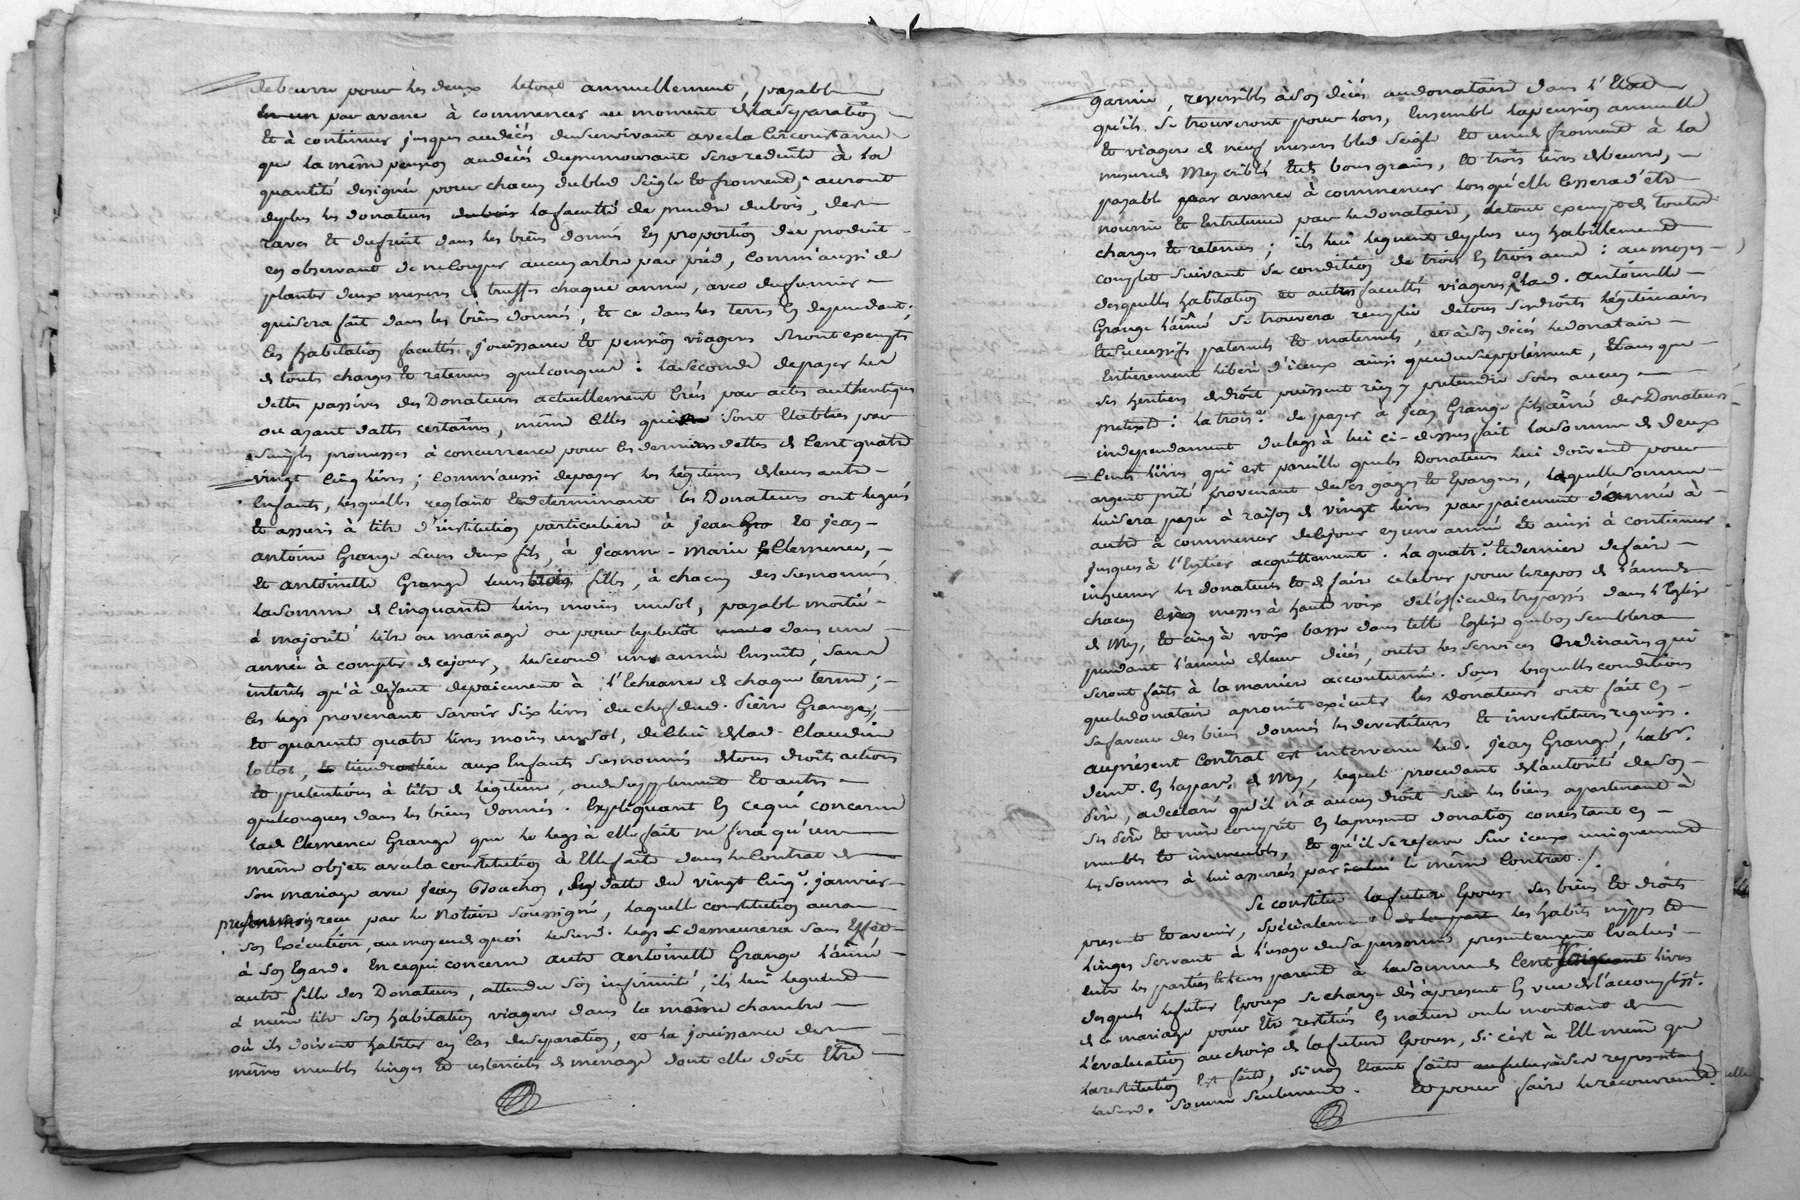 de beurre pour les deux le tout annuellement, payable
par avance à commencer au moment de la separation
et à continuer jusques au décès du survivant avec la circonstance
que la même pension au décès du premourant sera reduitte à la
quantité designée pour chacun du bled seigle et froment; auront
de plus les donateurs la faculté de prendre du bois, des
raves et du fruit dans les biens donnés en proportion du produit
en observant de ne couper aucun arbre par pied, comm'aussi de
planter deux mesures de truffes chaque année, avec du fumier
qui sera fait dans les biens donnés, et ce dans les terres en dependant;
les habitation facultés jouissance et pension viagere seront exempts
de touts charges et retenues quelconques: la seconde de payer les
dettes passives des Donateurs actuellement créés par actes authentiques
ou ayant dattes certaines, même celles qui sont etablies par
simples promesses à concurrence pour ces dernieres dettes de cent quatre
vingt cinq livres; comm'aussi de payer les légitimes de leurs autres
enfants, lesquelles reglant et determinant les Donateurs ont legués
et assuris à titre d'institution particuliere à Jean et Jean
antoine Grange leurs deux fils, à Jeanne-Marie Clemence,
et antoinette Grange leurs filles, à chacun des susnommés
la somme de cinquante livres moins un sol, payable moitié
à majorité ou mariage ou pour le plutôt dans une
année à compter de ce jour, le second une année ensuite, sans
interêts qu'à defaut de paiement à l'echeance de chaque terme;
les legs provenant savoir six livres du chef dud. Pierre Grange,
et quarente quatre livres moins un sol, de celui de lad. Claudine
lottot, tiendront lieu aux enfants susnommés de tous droits actions
et pretentions à titre de légitime, ou de supplement et autres
quelconques dans les biens donnés. Expliquant en ce qui concerne
lad. Clemence Grange que le legs à elle fait ne fera qu'un
même objet avec la constitution à elle faite dans le contrat de
son mariage avec Jean, en datte du vingt cinq janvier
reçu par le Notaire soussigné, laquelle constitution aura
son exécution, au moyen de quoi le susd. legs demeurera sans effet
à son egard. En ce qui concerne autre antoinette Grange l'ainée
autre fille des Donateurs, attendu son infirmité, ils lui leguent
à même titre son habitation viagere dans la même chambre
où ils doivent habiter en cas de separation, et la jouissance des
mêmes meubles linges et ustenciles de menage dont elle doit être
garnie, reversibles à son décès au donataire dans l'etat
qu'ils se trouveront pour lors, ensemble la pension annuelle
et viagere de neuf mesures bled seigle et une de froment à la
mesure de Mey criblés et de bons grains, et trois livres de beurre,
payable par avance à commencer lorsqu'elle cessera d'etre
nourrie et entretenue par le donataire, le tout exempt de toutes
charges et retenues; ils lui leguent de plus un habillement
complet suivant sa condition de trois en trois ans: au moyen
desquelles habitation et autres facultés viageres lad. antoinette
Grange l'ainée se trouvera remplie de tous ses droits légitimaires
et successifs paternels et maternels, et à son décès le donataire
entierement libéré d'iceux ainsi que du supplément, et sans que
ses heritiers de droit puissent rien y pretendre sous aucun
pretexte: la trois.e de payer à Jean Grange fils ainé des Donateurs
independament du legs à lui ci-dessus fait la somme de deux
cents livres qui est pareille que les Donateurs lui doivent pour
argent prêté provenant de ses gages et epargnes, laquelle somme
lui sera payée à raison de vingt livres par paiement d'année à
autre à commencer de ce jour en une année et ainsi à continuer
jusques à l'entier acquittement. la quatr.e et derniere de faire
inhumer les donateurs et de faire celebrer pour le repos de l'ame de
chacun cinq messes à haute voix de l'office des trépassés dans l'Eglise
de Mey, et cinq à voix basse dans telle Eglise que bon semblera
pendant l'année de leur décès, outre les services ordinaires qui
seront faits à la maniere accoutumée. Sous lesquelles conditions
que le donataire a promis executer les donateurs ont fait en
sa faveur des biens donnés les devestitures et investitures requises.
au présent contrat est intervenu led. Jean Grange, lab.r
dem.t en la par.sse de Mey, lequel procedant de l'autorité de son
Père, a declaré qu'il n'a aucun droit sur les biens appartenant à
ses Père et mère compris en la presente donation consistant en
meubles et immeubles, et qu'il se reserve sur iceux uniquement
les sommes à lui assurées par le même contrat./.
Se constitue la future Epouse ses biens et droits
presents et avenir, spécialement les habits nippes et
linges servant à l'usage de sa personne presentement evalués
entre les parties et leurs parents à la somme de cent livres
desquels le futur Epoux se charge dès à present en vue de l'accomplisst.
de ce mariage pour être restitués en nature ou le montant de
l'evaluation au choix de la future Epouse, si c'est à Elle même que
la restitution est faite, sinon etant faite
lasusd. somme seulement. Et pour faire le recouvrement